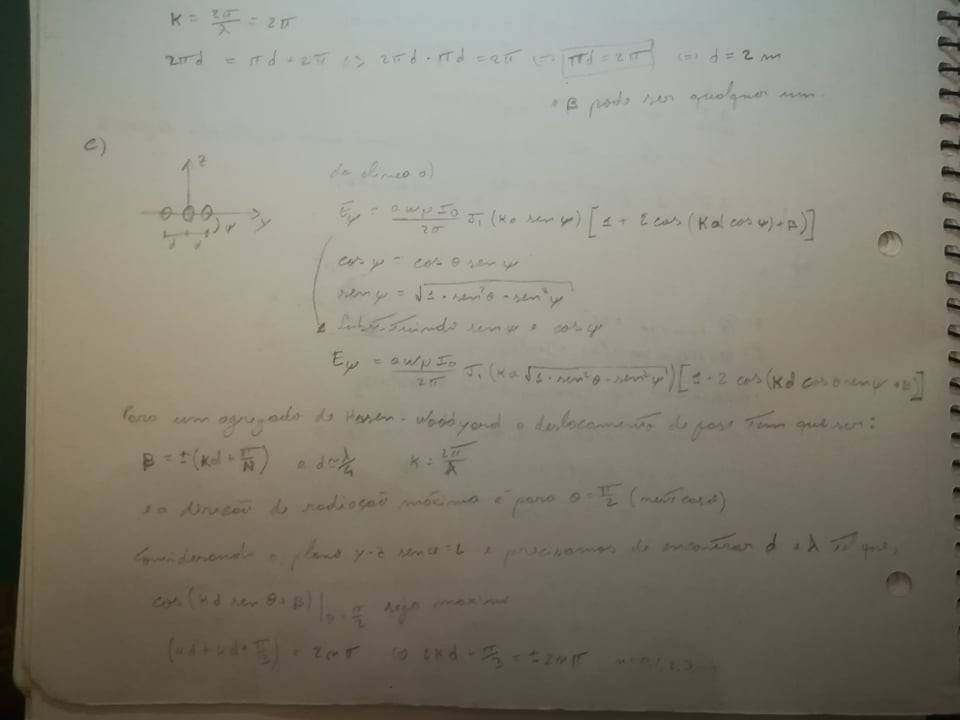 K = 2π/λ = 2π
2πd = πd + 2π ⇔ 2πd - πd = 2π ⇔ πd = 2π ⇔ d = 2 m
e β pode ser qualquer um.
c)
z
y
ψ
d d
da alínea a)
Eψ = a w μ I0 / 2π J1 (ka sen ψ) [1 + 2 cos (Kd cos ψ) + β)]
cos ψ = cos θ sen φ
sen ψ = √1 - sen²θ - sen²φ
Substituindo sen ψ e cos ψ
Eψ = a w μ I0 / 2π J1 (Ka √1 - sen²θ - sen²φ) [1 + 2 cos (Kd cos θ sen φ + β)]
Para um agregado de Hasen-Woodyard o deslocamento de fase tem que ser:
β = ± (Kd + π/N) e d ≈ λ/4 K = 2π/λ
e a direção de radiação máxima é para θ = π/2 (neste caso)
Considerando o plano y-z sen φ = 1 e precisamos de encontrar d e λ tal que,
cos (Kd sen θ + β) |θ = π/2 seja maximo
(Kd + Kd + π/3) = 2nπ ⇔ 2Kd + π/3 = ± 2nπ n = 0, 1, 2, 3, ...